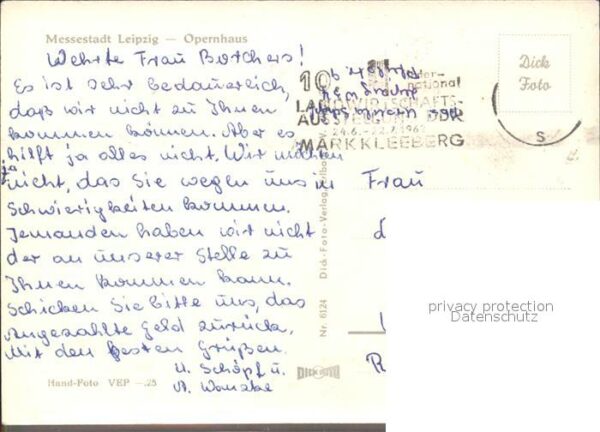 Messestadt Leipzig — Opernhaus
Wehrte Frau Borchers!
Es ist sehr bedauerlich,
daß wir nicht zu Ihnen
kommen können. Aber es
hilft ja alles nicht. Wir möchten
ja nicht, das Sie wegen uns in
Schwierigkeiten kommen.
Jemanden haben wir nicht
der an unserer Stelle zu
Ihnen kommen kann.
Schicken Sie bitte uns, das
Angezahlte Geld zurück.
Mit den besten Grüßen.
U. Schöpf u.
Hand-Foto VEP -.25
Nr. 6124 Dick-Foto-Verlag,
DICK FOTO
10
national
LANDWIRTSCHAFTS-
AUSSTELLUNG DDR
MARKKLEEBERG
Dick
Foto
S
Frau
privacy protection
Datenschutz